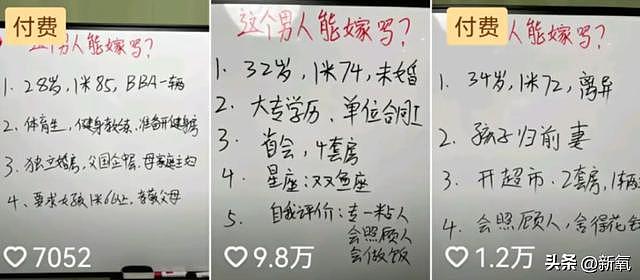 付费
这个男人能嫁吗?
1. 28岁,1米85,BBA一辆
2、体育生,健身教练、准备开健身房
3、独立婚房,父国企 母家庭主妇
4、要求女孩1米6以上,孝敬父母
7052
这个男人能嫁吗?
1. 32岁,1米74,未婚
2. 大专学历、单位合同工
3. 省会,4套房
4. 星座:双鱼座
5. 自我评价:专一粘人
会照顾人
会做饭
9.8万
付费
个男人能嫁吗?
1. 34岁,1米72,离异
2. 孩子归前妻
3. 开超市、2套房,1辆
4. 会照顾人,舍得花
1.2万
头条 @新氧